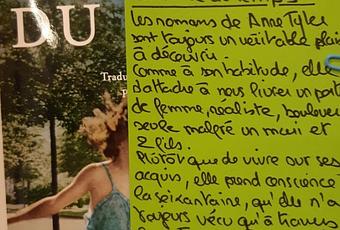 DU
Tradu
Les romans de Anne Tyler
sont toujours un véritable plais
à découvrir.
Comme à son habitude, elle
s'attache à nous livrer un port
de femme, réaliste, boulever
seule malgré un mari et
2 fils.
Plutôt que de vivre sur ses
acquis, elle prend conscience
la soixantaine, qu'elle n'a
toujours vécu qu'à travers